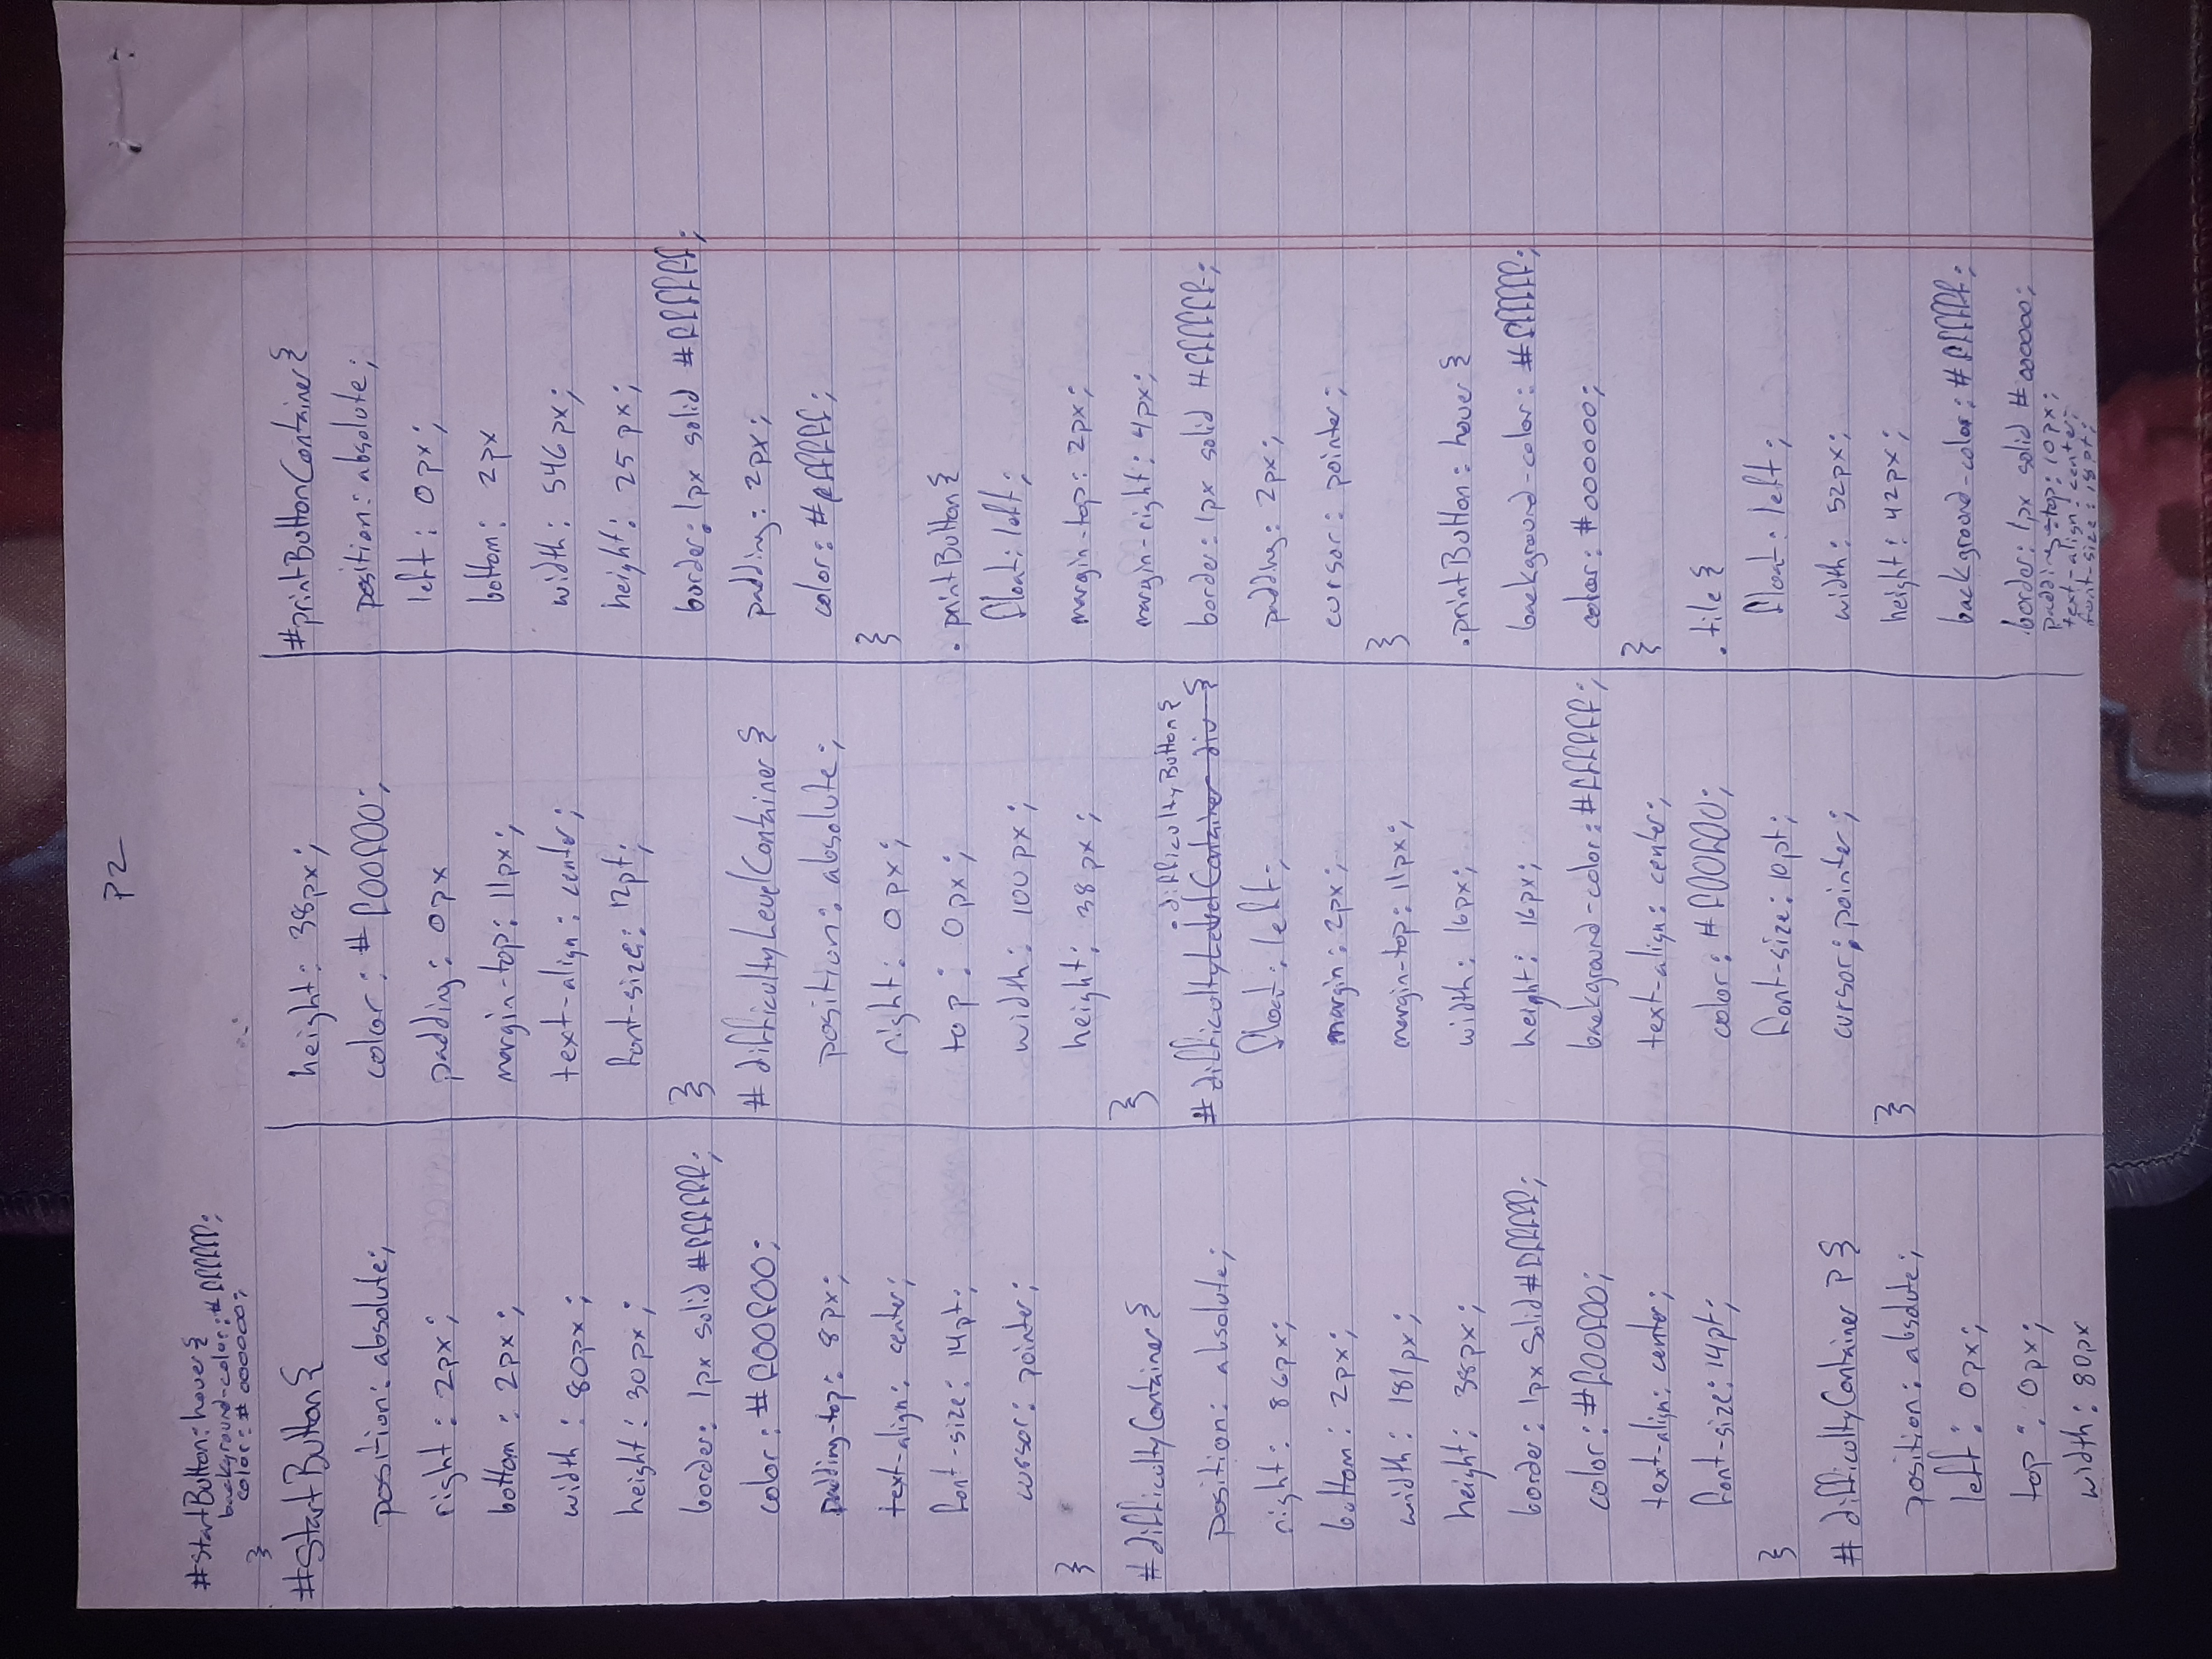 P2
#startButton:hover{
background-color:#ffffff;
color:#000000;
}
#startButton{
position: absolute;
right: 2px;
bottom: 2px;
width: 80px;
height: 30px;
border: 1px solid #ffffff;
color: #f00f00;
padding-top: 8px;
text-align: center;
font-size: 14pt;
cursor: pointer;
}
#difficultyContainer{
position: absolute;
right: 86px;
bottom: 2px;
width: 181px;
height: 38px;
border: 1px Solid #ffffff;
color: #f00f00;
text-align: center;
font-size: 14pt;
}
# difficultyContainer P{
position: absolute;
left: 0px;
top: 0px;
width: 80px
height: 38px;
color: #f00f00;
padding: 0px
margin-top: 11px;
text-align: center;
font-size: 12pt;
}
# difficultyLevelContainer {
position: absolute;
right: 0px;
top: 0px;
width: 100px;
height: 38px;
}
.difficultyButton{
# difficultyLevelContainer div {
float: left;
margin: 2px;
margin-top: 11px;
width: 16px;
height: 16px;
background-color: #ffffff;
text-align: center;
color: #f00f00;
font-size: 10pt;
cursor: pointer;
}
#printButtonContainer{
position: absolute;
left: 0px;
bottom: 2px
width: 546px;
height: 25px;
border: 1px solid #ffffff;
padding: 2px;
color: #ffffff;
}
.printButton{
float: left;
margin-top: 2px;
margin-right: 4px;
border: 1px solid #ffffff;
padding: 2px;
cursor: pointer;
}
.printButton:hover {
background-color: #ffffff;
color: #000000;
}
.tile {
float: left;
width: 52px;
height: 42px;
background-color: #ffffff;
border: 1px solid #000000;
padding-top: 10px;
text-align: center;
font-size: 18pt;